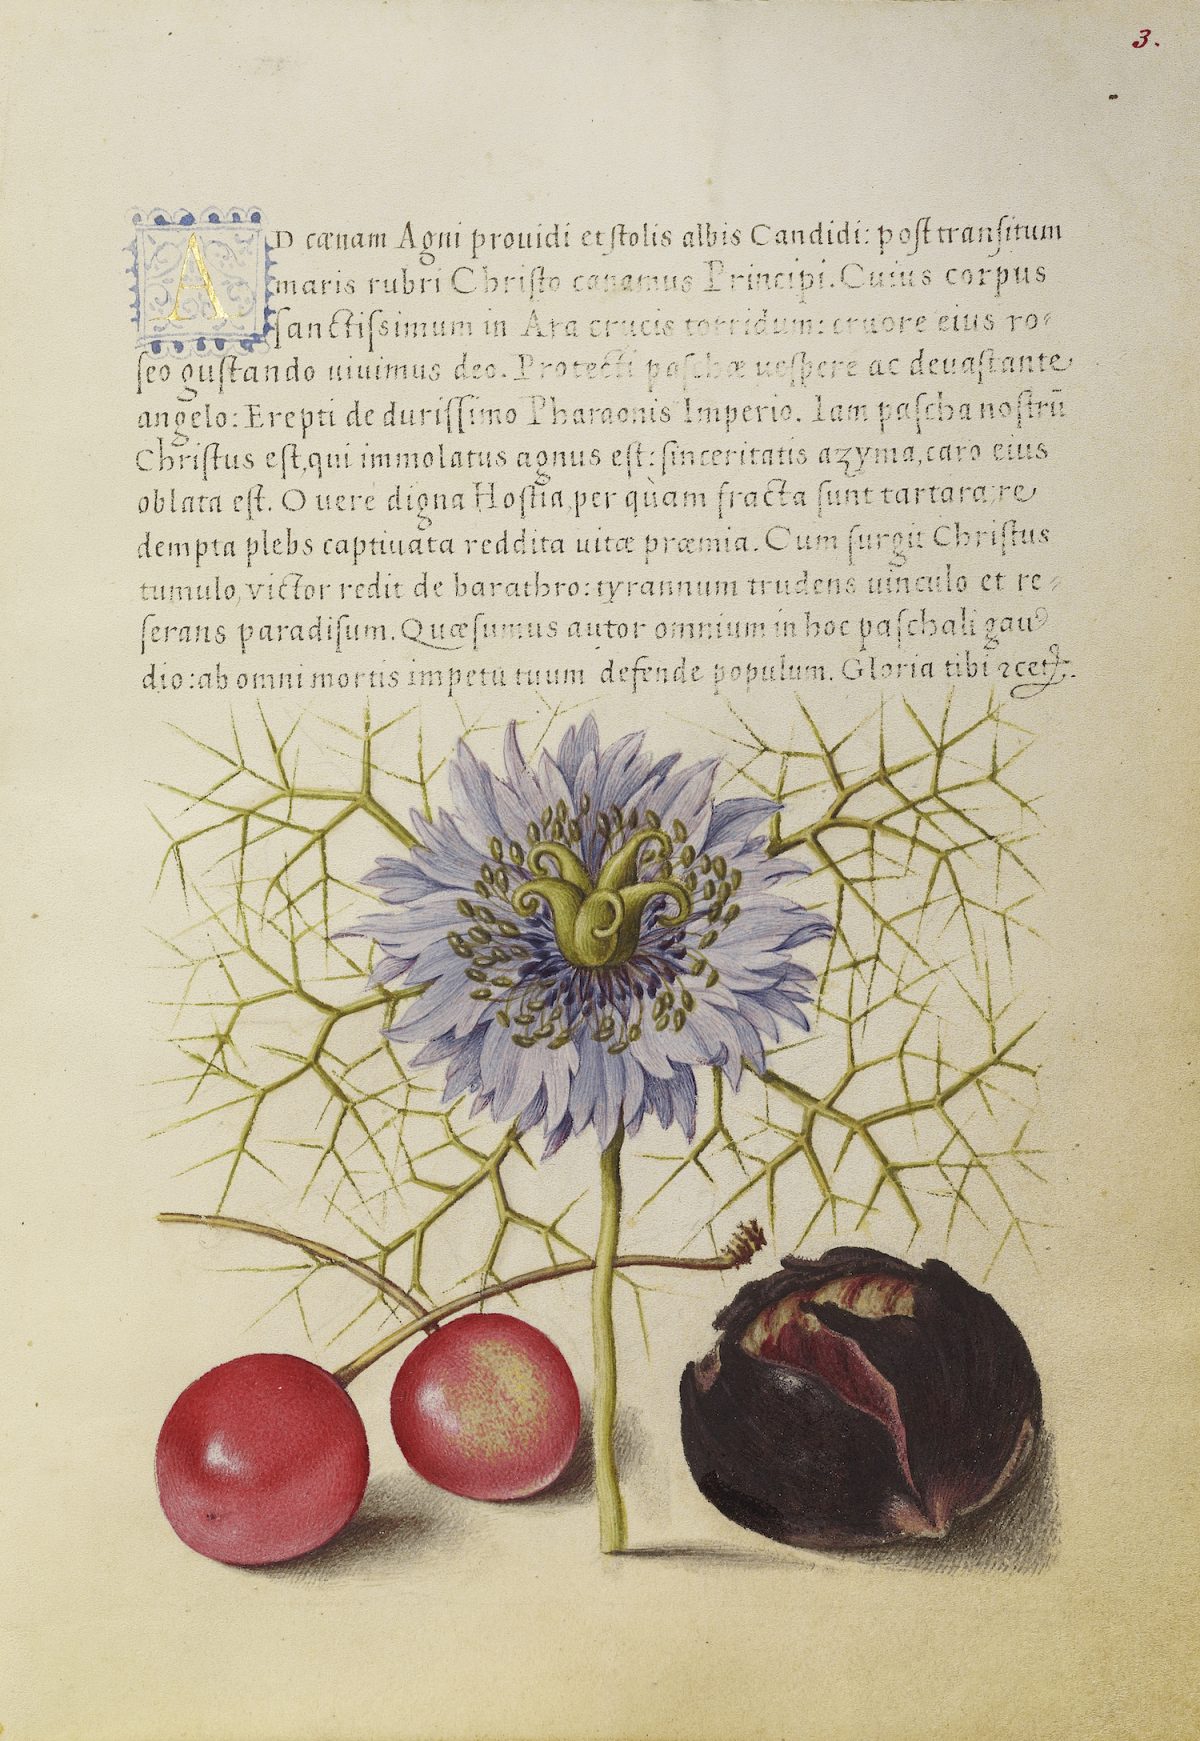 3.
AD cœnam Agni prouidi et ſtolis albis Candidi: poſt tranſitum
maris rubri Chriſto canamus Principi. Cuius corpus
ſanctiſsimum in Ara crucis torridum: cruore eius ro=
ſeo guſtando uiuimus deo. Protecti paſchæ ueſpere ac deuaſtante
angelo: Erepti de duriſſimo Pharaonis Imperio. Iam paſcha noſtrū
Chriſtus eſt, qui immolatus agnus eſt: ſinceritatis azyma, caro eius
oblata eſt. O uere digna Hoſtia, per quàm fracta ſunt tartara: re
dempta plebs captiuata reddita uitæ præmia. Cum ſurgit Chriſtus
tumulo, victor redit de barathro: tyrannum trudens uinculo et re=
ſerans paradiſum. Quæſumus autor omnium in hoc paſchali gau
dio: ab omni mortis impetu tuum defende populum. Gloria tibi ⁊cet.